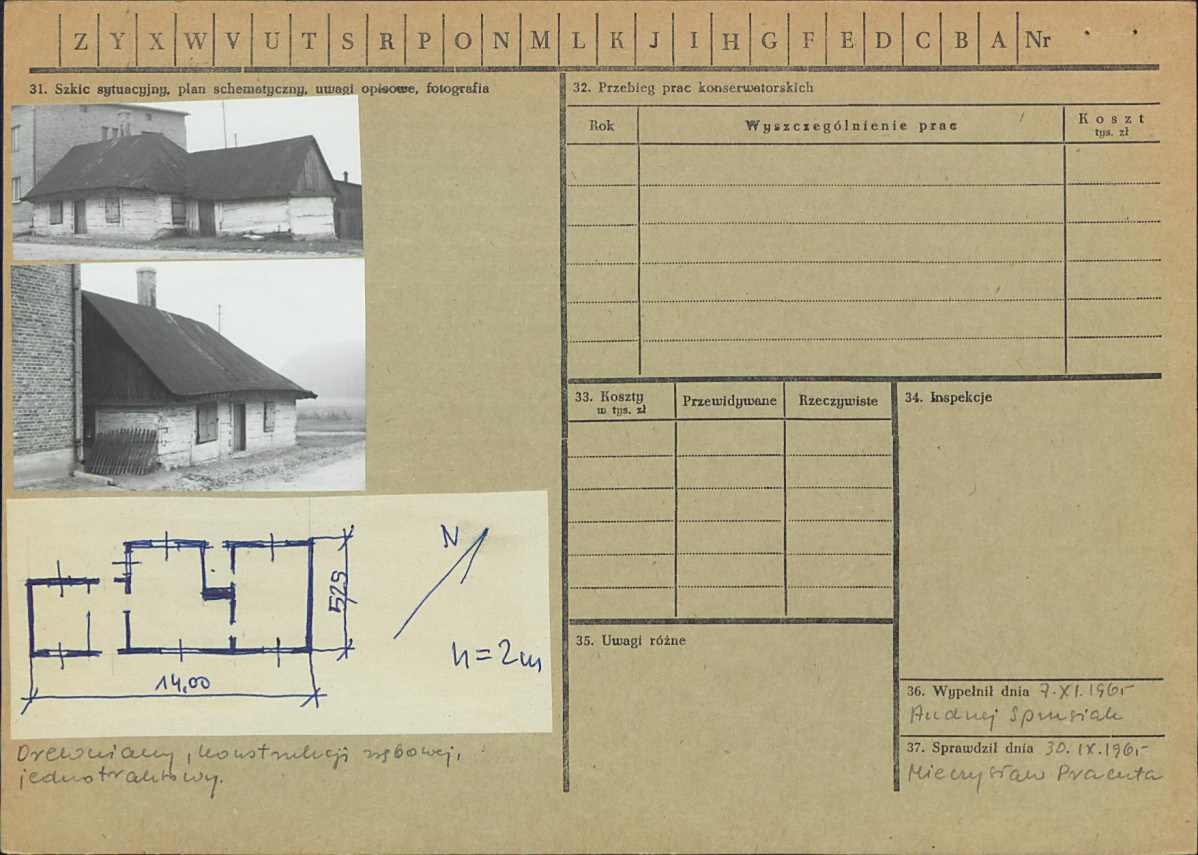 Z Y X W V U T S R P O N M L K J I H G F E D C B A Nr
31. Szkic sytuacyjny, plan schematyczny, uwagi opisowe, fotografia
N
529
h=2m
14,00
Drewniany, konstrukcji zrębowej,
jednotraktowy.
32. Przebieg prac konserwatorskich
Rok
Wyszczególnienie prac
Koszt
tys. zł
33. Koszty
w tys. zł
Przewidywane
Rzeczywiste
34. Inspekcje
35. Uwagi różne
36. Wypełnił dnia 7.XI.196
Andrzej
37. Sprawdził dnia 30.IX.196
Mieczysław Pracuta